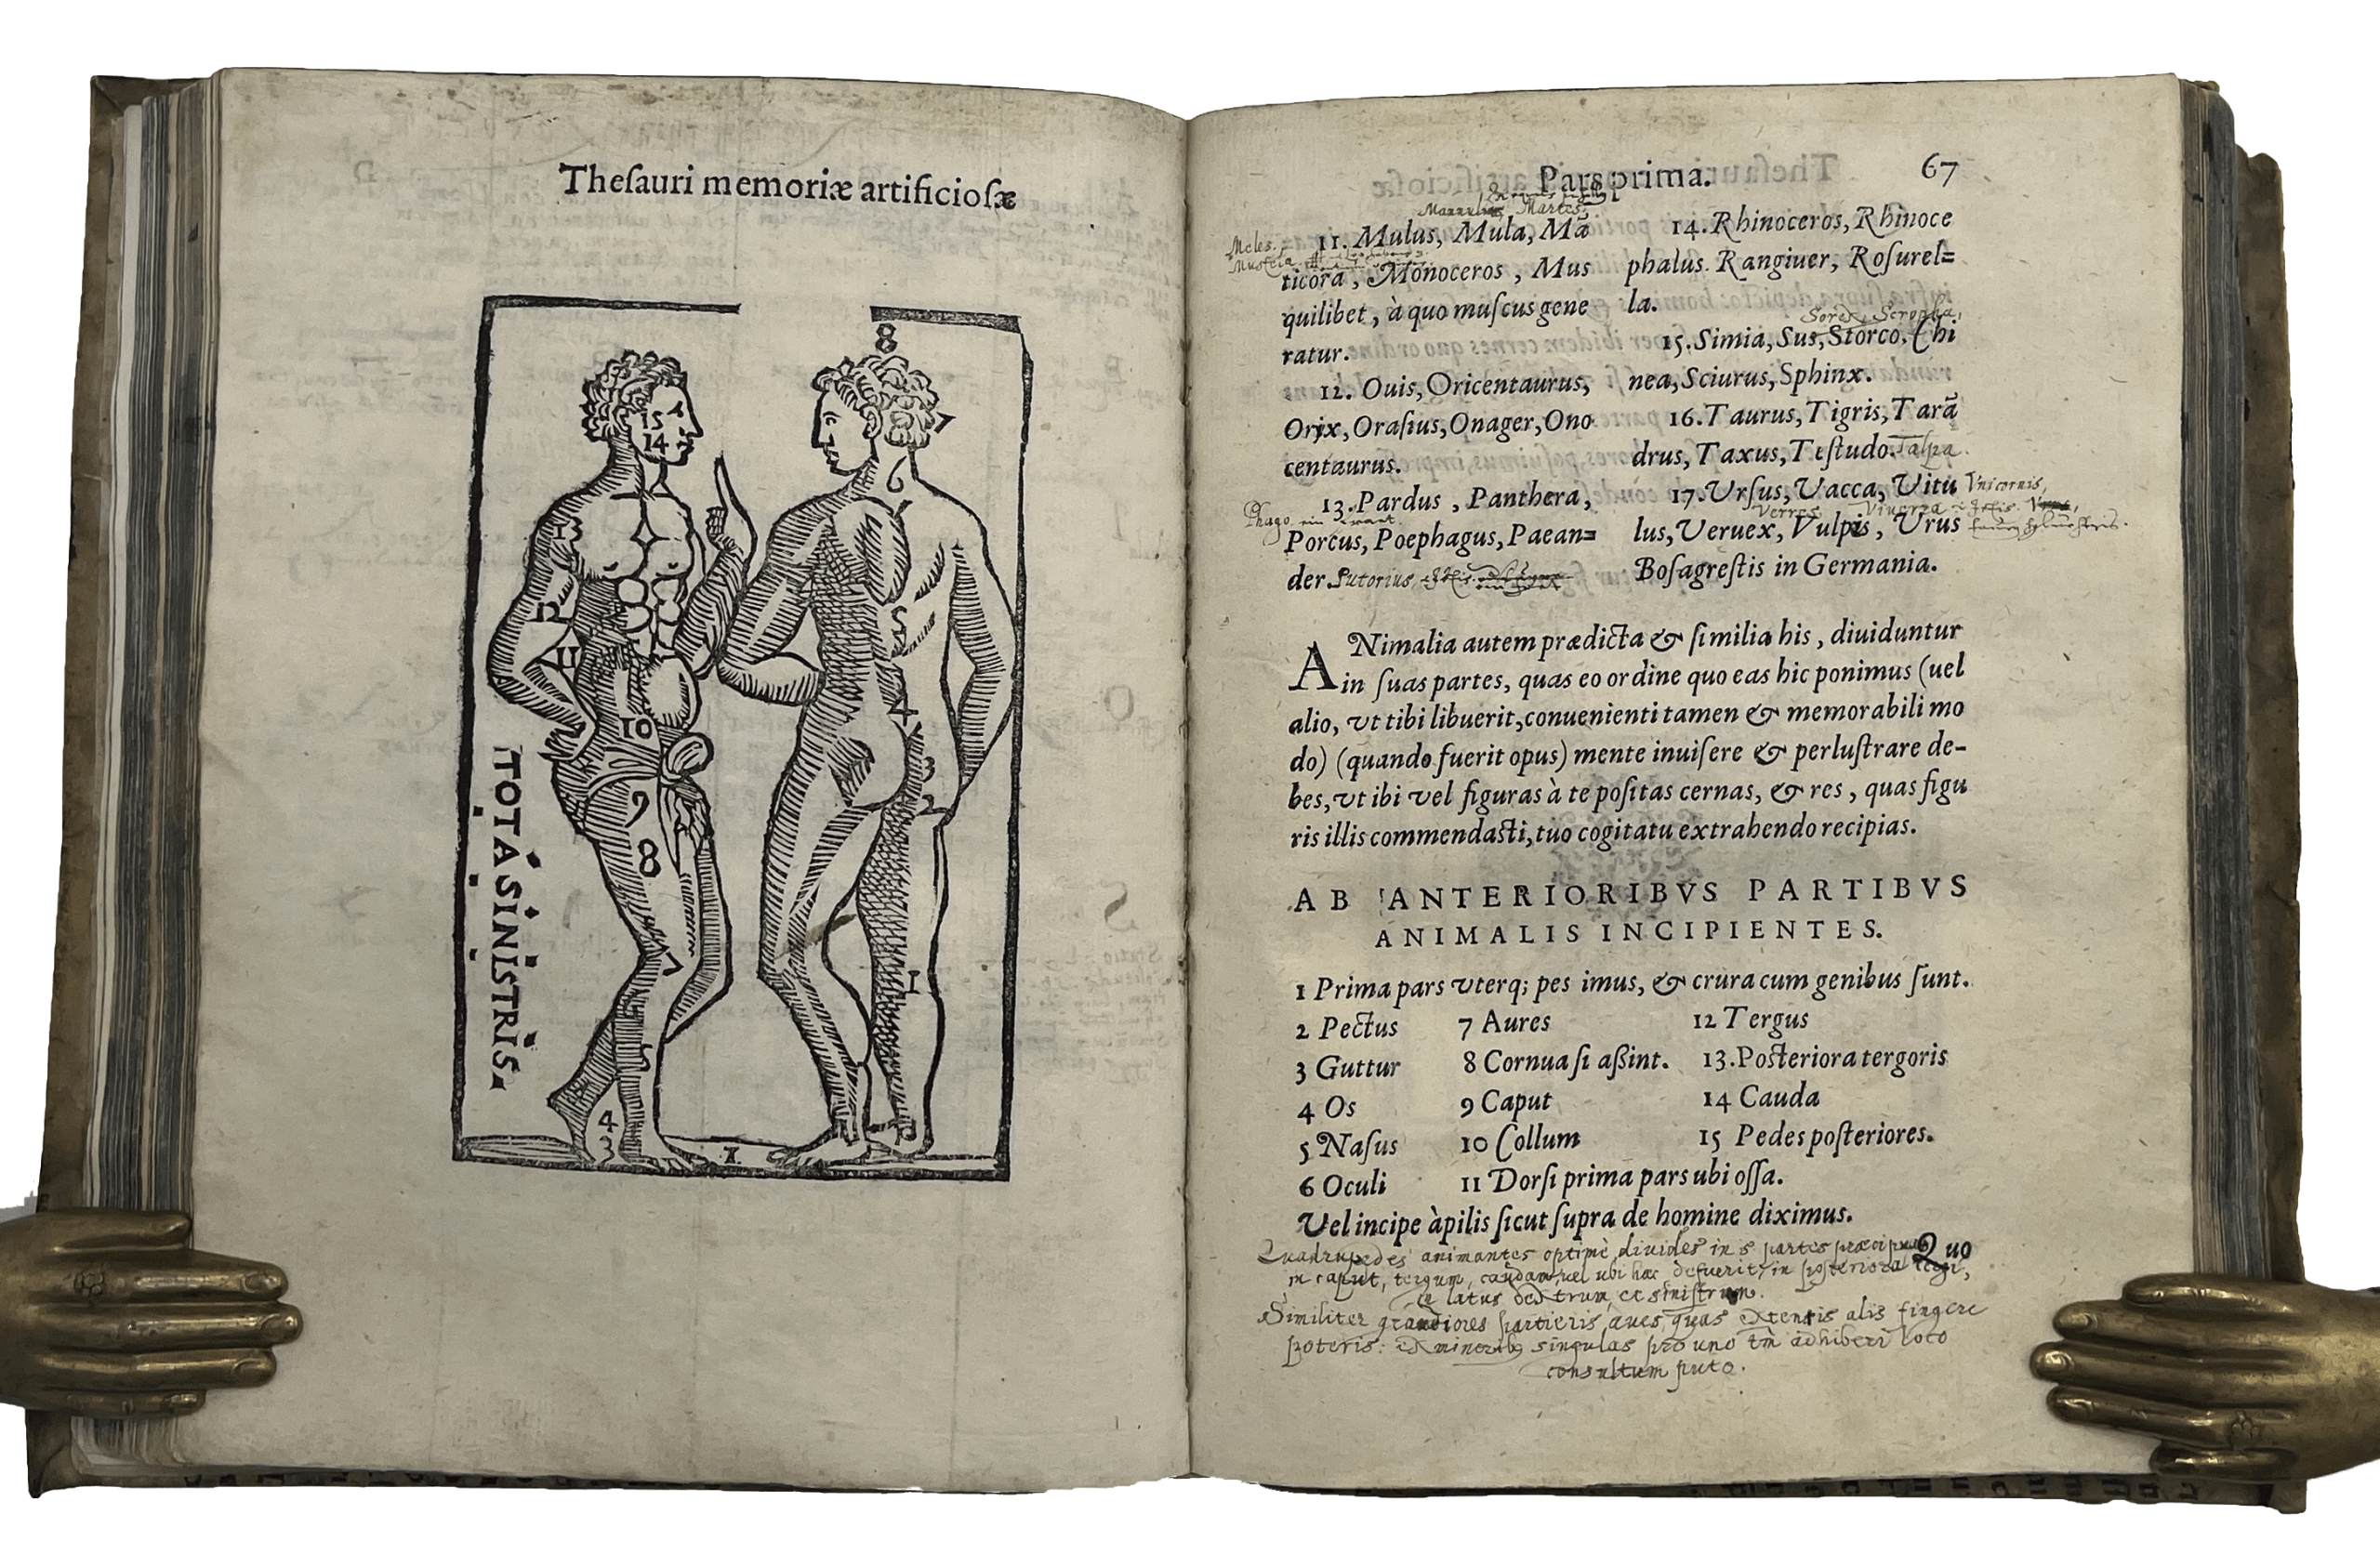 Theſauri memoriæ artificioſæ
8
7
15
14
6
13
5
12
11
4
10
3
2
9
8
7
1
5
4
3
1.
TOTA SINISTRIS.
Pars prima. 67
Mannulus Martes
Meles.
Mustela
11. Mulus, Mula, Mã
ticora, Monoceros, Mus
quilibet, à quo muſcus gene
ratur.
12. Ouis, Oricentaurus,
Orix, Oraſius, Onager, Ono
centaurus.
13. Pardus, Panthera,
Phago ein
Porcus, Poephagus, Paean=
der Sutorius
14. Rhinoceros, Rhinoce
phalus. Rangiuer, Roſurel=
la.
Sorex, Scropha,
15. Simia, Sus, Storco, Chi
nea, Sciurus, Sphinx.
16. Taurus, Tigris, Tarã
drus, Taxus, Teſtudo. Talpa.
17. Vrſus, Vacca, Vitu Vnicornis,
Verres Viuerra
lus, Veruex, Vulpis, Vrus
Boſagreſtis in Germania.
ANimalia autem prædicta & ſimilia his, diuiduntur
in ſuas partes, quas eo ordine quo eas hic ponimus (uel
alio, vt tibi libuerit, conuenienti tamen & memorabili mo
do) (quando fuerit opus) mente inuiſere & perluſtrare de-
bes, vt ibi vel figuras à te poſitas cernas, & res, quas figu
ris illis commendaſti, tuo cogitatu extrahendo recipias.
AB ANTERIORIBVS PARTIBVS
ANIMALIS INCIPIENTES.
1 Prima pars vterq; pes imus, & crura cum genibus ſunt.
2 Pectus 7 Aures 12 Tergus
3 Guttur 8 Cornua ſi aßint. 13. Poſteriora tergoris
4 Os 9 Caput 14 Cauda
5 Naſus 10 Collum 15 Pedes poſteriores.
6 Oculi 11 Dorſi prima pars ubi oſſa.
Vel incipe à pilis ſicut ſupra de homine diximus.
Quo
Quadrupedes animantes optimè diuides in 5 partes præcipuas
in caput, tergum, caudam, vel ubi hæc defuerit, in posteriora
latus dextrum, et sinistrum.
Similiter grandiores partieris aues, quas extensis alis fingere
poteris: Ex minorib9 singulas pro uno tm̄ adhiberi loco
consultum puto.